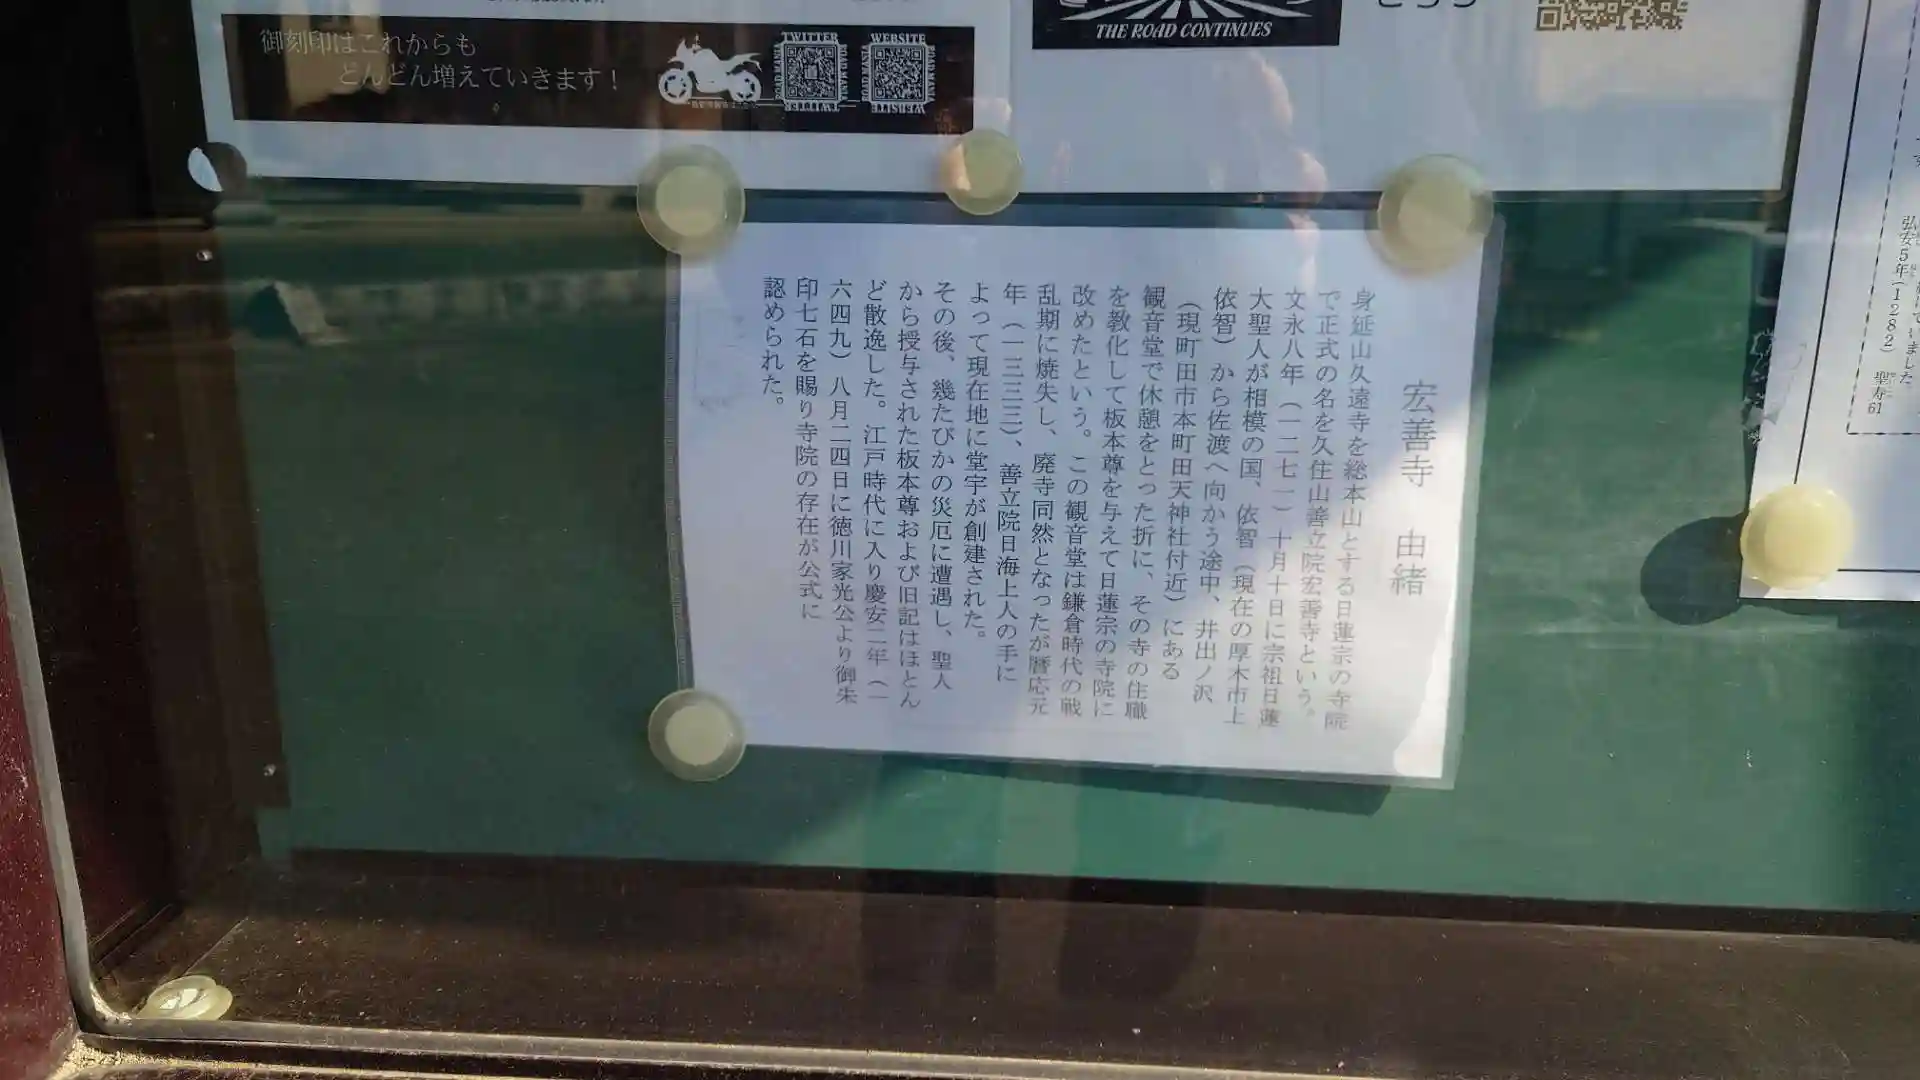 御刻印はこれからも
どんどん増えていきます！
TWITTER
WEBSITE
THE ROAD CONTINUES
宏善寺　由緒
身延山久遠寺を総本山とする日蓮宗の寺院
で正式の名を久住山善立院宏善寺という。
文永八年（一二七一）十月十日に宗祖日蓮
大聖人が相模の国、依智（現在の厚木市上
依智）から佐渡へ向かう途中、井出ノ沢
（現町田市本町田天神社付近）にある
観音堂で休憩をとった折に、その寺の住職
を教化して板本尊を与えて日蓮宗の寺院に
改めたという。この観音堂は鎌倉時代の戦
乱期に焼失し、廃寺同然となったが暦応元
年（一三三三）、善立院日海上人の手に
よって現在地に堂宇が創建された。
その後、幾たびかの災厄に遭遇し、聖人
から授与された板本尊および旧記はほとん
ど散逸した。江戸時代に入り慶安二年（一
六四九）八月二四日に徳川家光公より御朱
印七石を賜り寺院の存在が公式に
認められた。
弘安5年(1282) 聖寿61